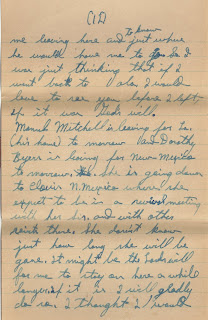 (12)
to know
me leaving here and just where
he would have me to go. So I
was just thinking that if I
went back to Okla I would
love to see you before I left,
if it was Gods will.
Mitchell is leaving for La.
this here to morrow and Dorothy
Byers is leaving for New Mexico
to morrow, She is going down
to Clovis N. Mexico where she
expect to be in a revival meeting
with her sis. and with other
saints there. She doesn't know
just how long she will be
gone. It might be the Lords will
for me to stay on here a while
longer, if it is I will gladly
do so. I thought I would